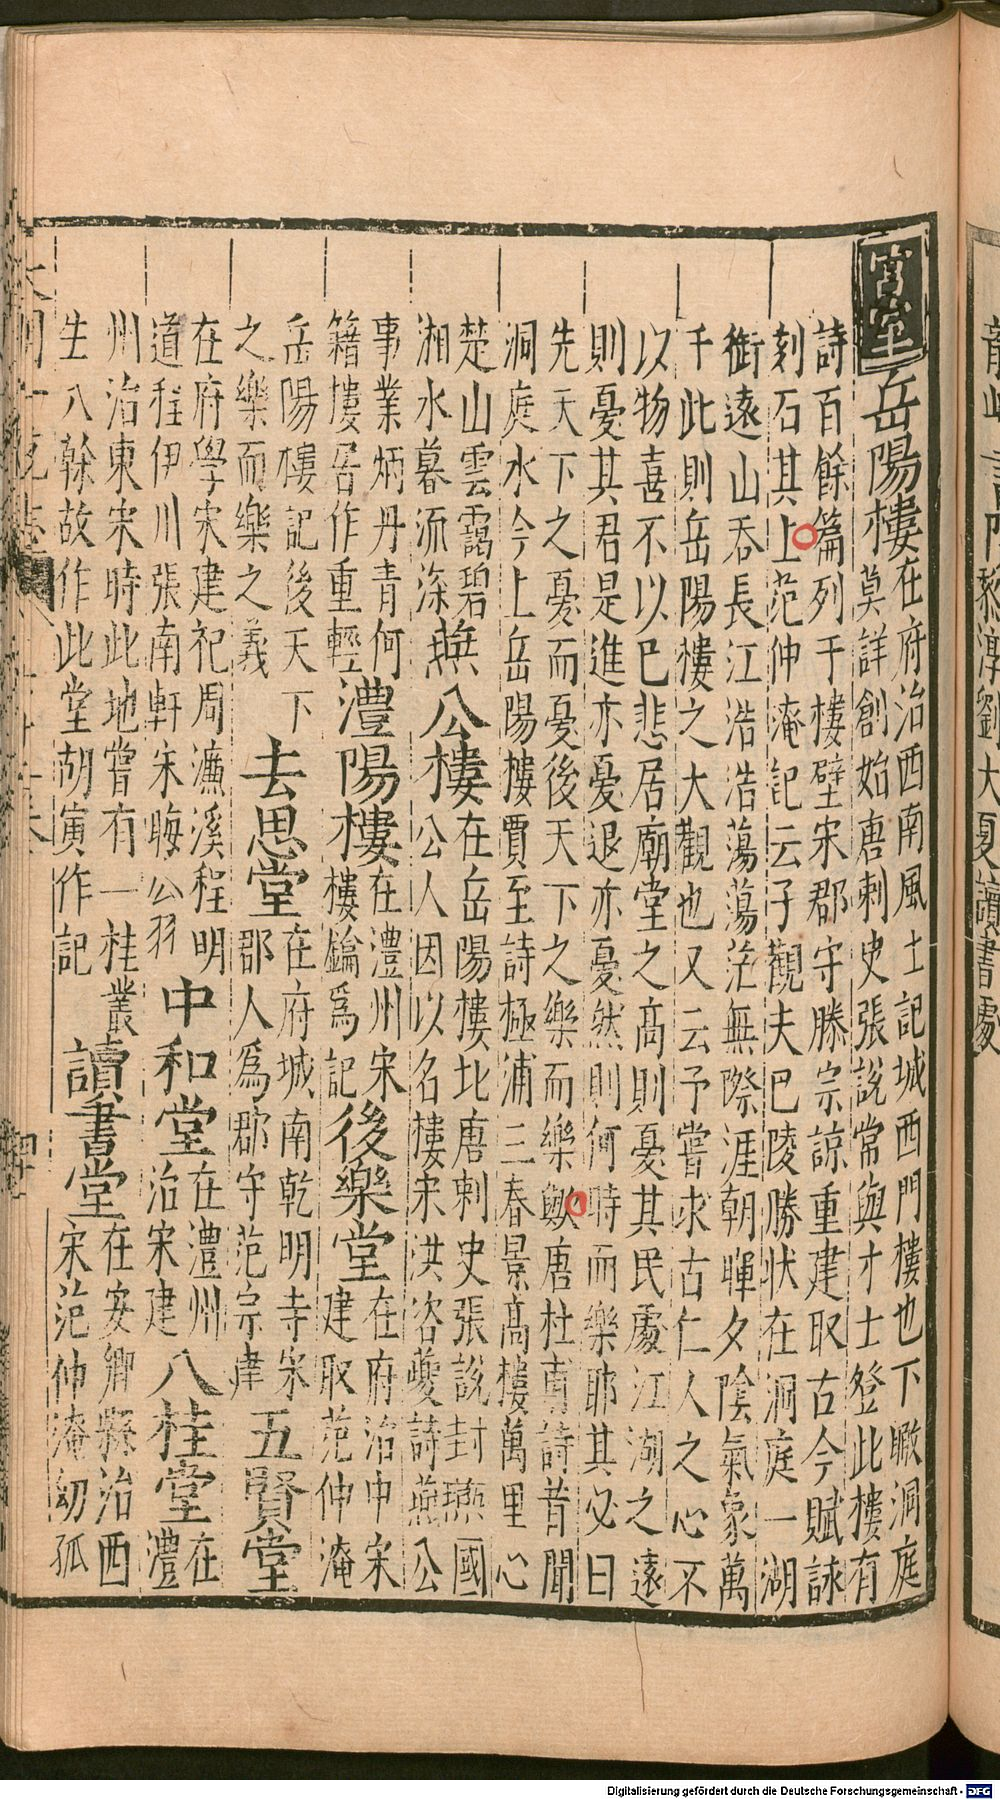 宮室
岳陽樓在府治西南風土記城西門樓也下瞰洞庭
莫詳創始唐刺史張說常與才士登此樓有
詩百餘篇列于樓壁宋郡守滕宗諒重建取古今賦詠
刻石其上范仲淹記云予觀夫巴陵勝狀在洞庭一湖
銜遠山吞長江浩浩蕩蕩茫無際涯朝暉夕陰氣象萬
千此則岳陽樓之大觀也又云予嘗求古仁人之心不
以物喜不以已悲居廟堂之高則憂其民處江湖之遠
則憂其君是進亦憂退亦憂然則何時而樂耶其必曰
先天下之憂而憂後天下之樂而樂歟唐杜甫詩昔聞
洞庭水今上岳陽樓賈至詩極浦三春景高樓萬里心
楚山雲靄碧
湘水暮流深
燕公樓
在岳陽樓北唐刺史張說封燕國
公人因以名樓宋洪咨夔詩燕公
事業炳丹青何
籍樓居作重輕
澧陽樓
在澧州宋
樓鑰爲記
後樂堂
在府治中宋
建取范仲淹
岳陽樓記後天下
之樂而樂之義
去思堂
在府城南乾明寺宋
郡人爲郡守范宗
五賢堂
在府學宋建祀周濂溪程明
道程伊川張南軒宋晦公
中和堂
在澧州
治宋建
八桂堂
在
澧
州治東宋時此地嘗有一桂叢
生八榦故作此堂胡寅作記
讀書堂
在安鄉縣治西
宋范仲淹幼孤
劉大夏讀書處
Digitalisierung gefördert durch die Deutsche Forschungsgemeinschaft - DFG